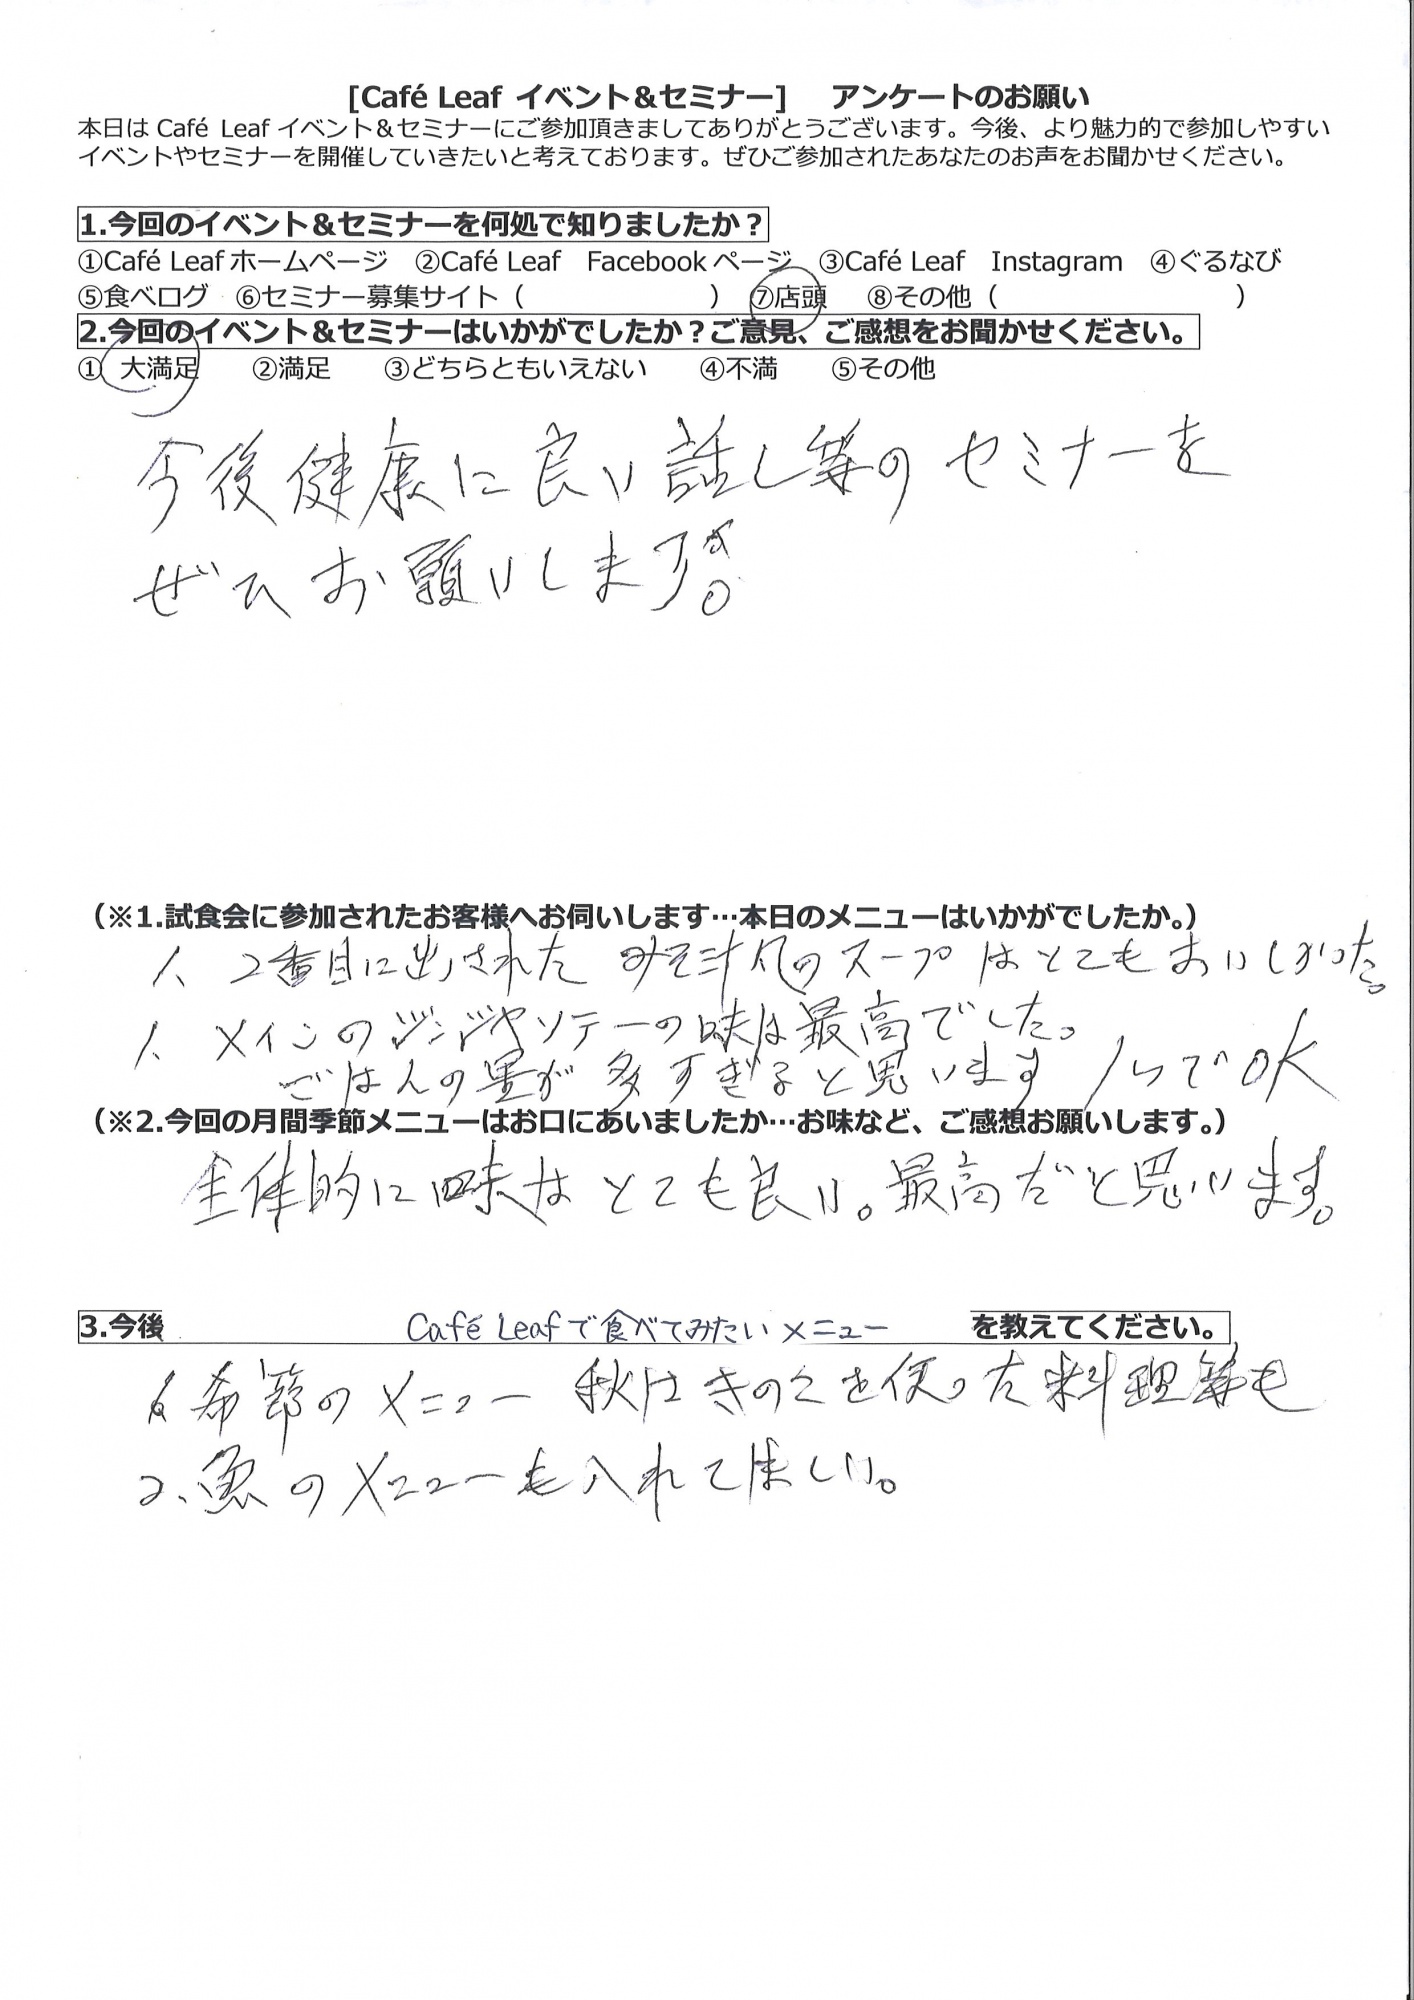 [Café Leaf イベント＆セミナー]　アンケートのお願い
本日は Café Leaf イベント＆セミナーにご参加頂きましてありがとうございます。今後、より魅力的で参加しやすい
イベントやセミナーを開催していきたいと考えております。ぜひご参加されたあなたのお声をお聞かせください。
1.今回のイベント＆セミナーを何処で知りましたか？
①Café Leaf ホームページ　②Café Leaf　Facebook ページ　③Café Leaf　Instagram　④ぐるなび
⑤食べログ　⑥セミナー募集サイト（　　　　　　　）　⑦店頭　⑧その他（　　　　　　　　　）
2.今回のイベント＆セミナーはいかがでしたか？ご意見、ご感想をお聞かせください。
①　大満足　　②満足　　③どちらともいえない　　④不満　　⑤その他
今後健康に良い話し等のセミナーを
ぜひお願いします。
（※1.試食会に参加されたお客様へお伺いします…本日のメニューはいかがでしたか。）
1、2番目に出された みそ汁風のスープはとてもおいしかった。
1、メインのジンジャソテーの味は最高でした。
ごはんの量が多すぎると思います
でOK
（※2.今回の月間季節メニューはお口にあいましたか…お味など、ご感想お願いします。）
全体的に味はとても良い。最高だと思います。
3.今後　Café Leafで食べてみたいメニュー　を教えてください。
節のメニュー 秋はきのこを使った料理等も
2、魚のメニューも入れてほしい。